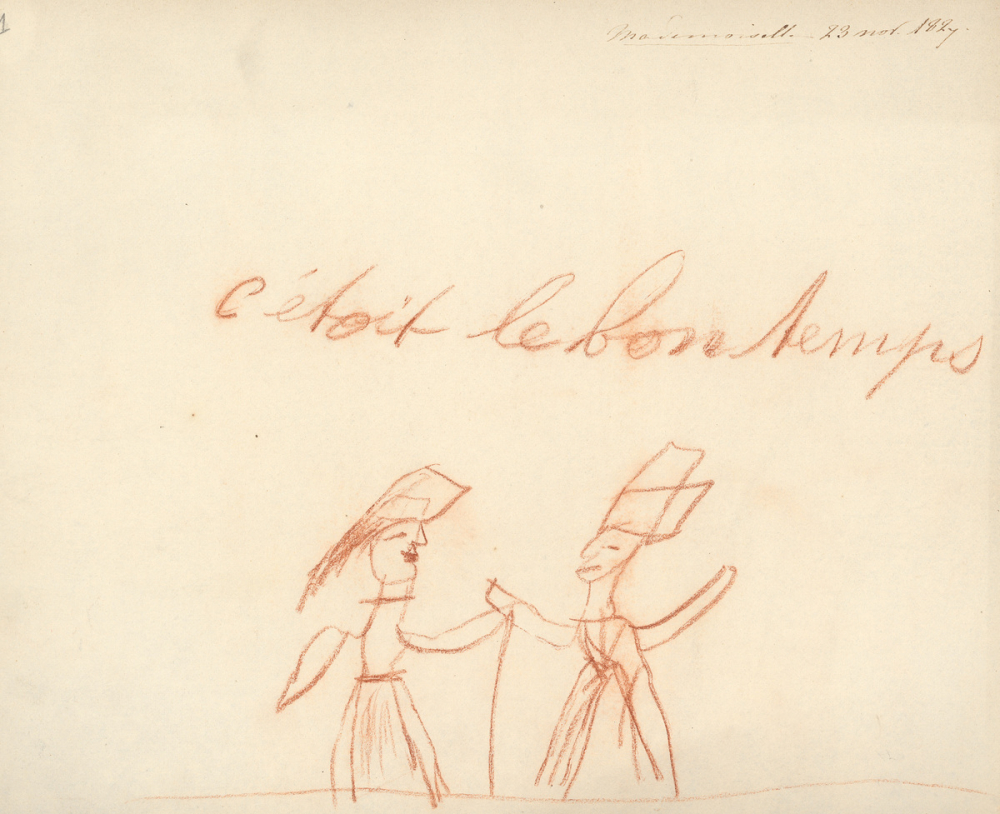 1
Mademoiselle 23 nov. 1827.
c'étoit le bon temps